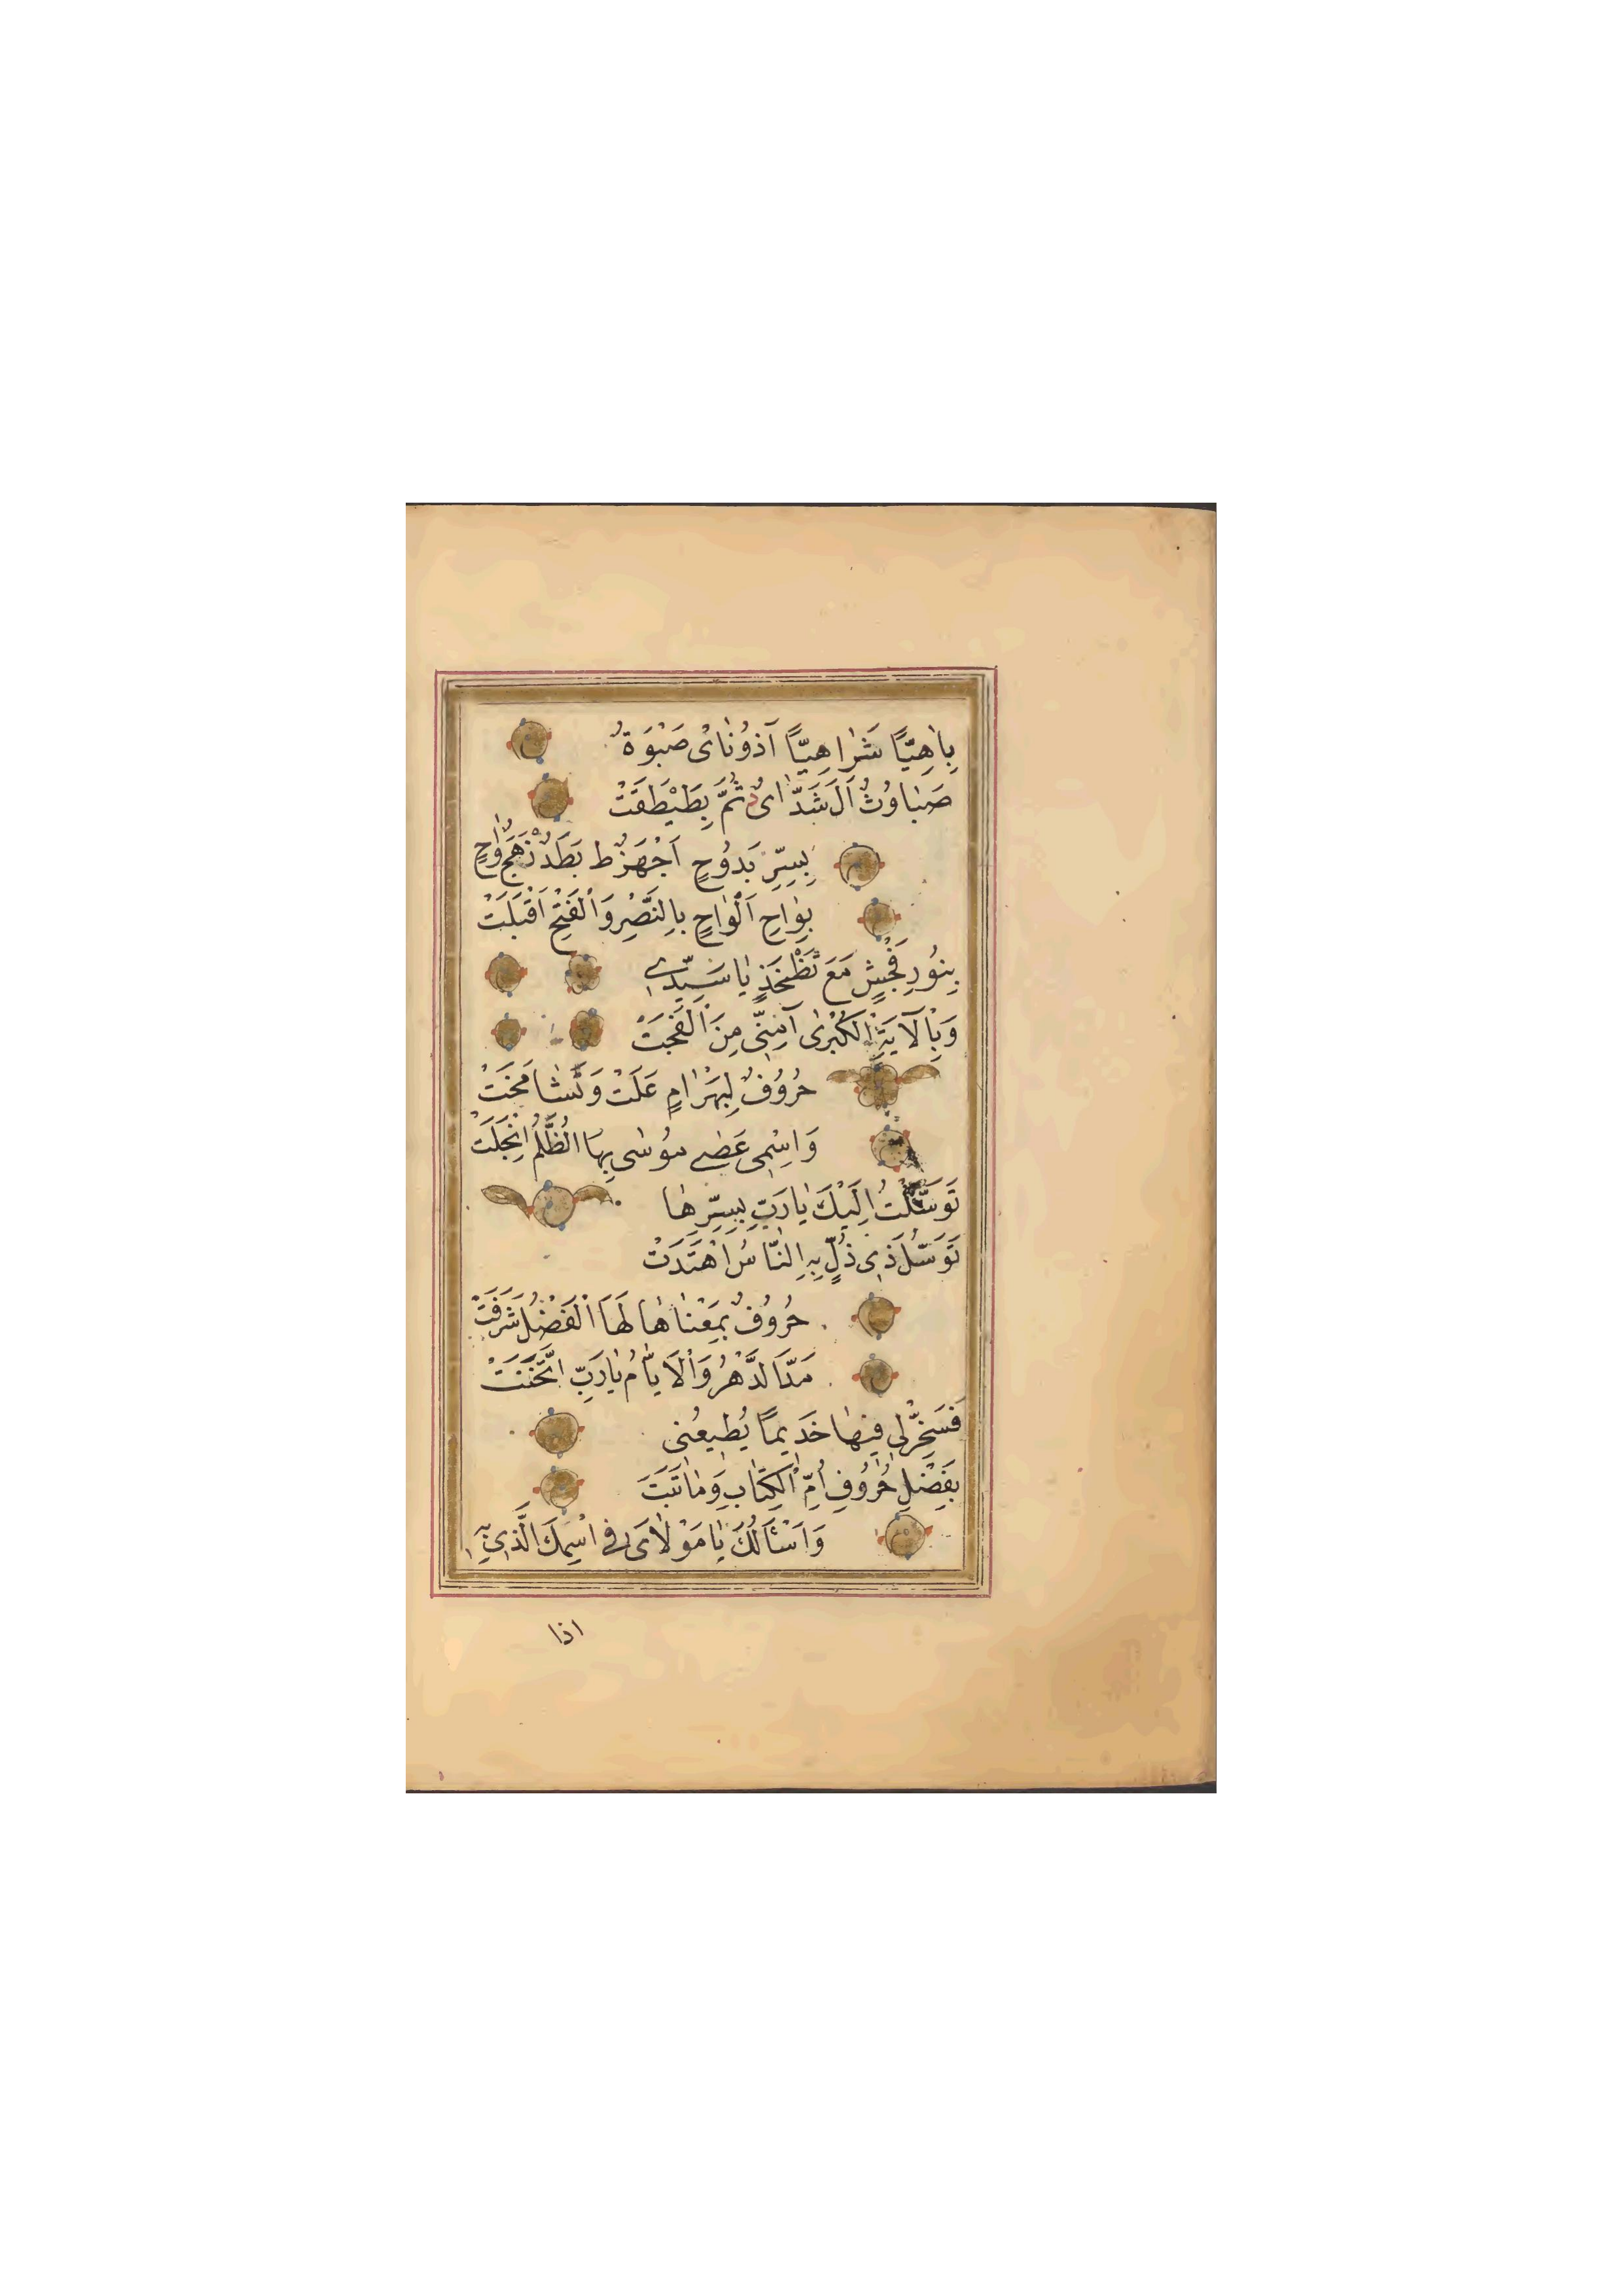 بِاٰهِيًّا شَرٰاهِيًّا آذوُنٰاىْ صَبْوَةٌ
صَبٰاوُثٌ اَلَ شَدّٰاىٌ ثُمَّ بِطَيْطَغَتْ
بِسِرِّ بَدوُحٍ اَجْهَزُط بَطَدٌ زَهَجٌ وٰاحٍ
بِوٰاحِ اَلْوٰاحٍ بِالنَّصْرِ وَالْفَتْحِ اَقْبَلَتْ
بِنوُرِ فَجْشٍ مَعَ ثَظْخَذٍ يٰا سَيِّدى
وَبِالْآيَةِ الْكُبْرٰى آمِنّى مِنَ الْفَجَتْ
حُروُفٌ لِبَهْرٰامٍ عَلَتْ وَتَشٰامَخَتْ
وَاسْمِى عَصٰى موُسٰى بِهَا الظُّلَمُ انْجَلَتْ
تَوَسَّلْتُ اِلَيْكَ يٰا رَبِّ بِسِرِّهٰا
تَوَسُّلَ ذى ذُلٍّ بِهِ النّٰاسُ اهْتَدَتْ
حُروُفٌ بِمَعْنٰاهٰا لَهَا الْفَضْلُ شَرَفَتْ
مَدَا لدَّهْرُ وَالْاَيّٰامُ يٰا رَبِّ انْحَنَتْ
فَسَخِّرْلى فيهٰا خَديمًا يُطيعُنى
بِفَضْلِ حُروُفِ اُمِّ الْكِتٰابِ وَمٰا تَبَتَ
وَاَسْئَلُكَ يٰا مَوْلٰاىَ فى اسْمِكَ الَّذى بِهِ
اذا